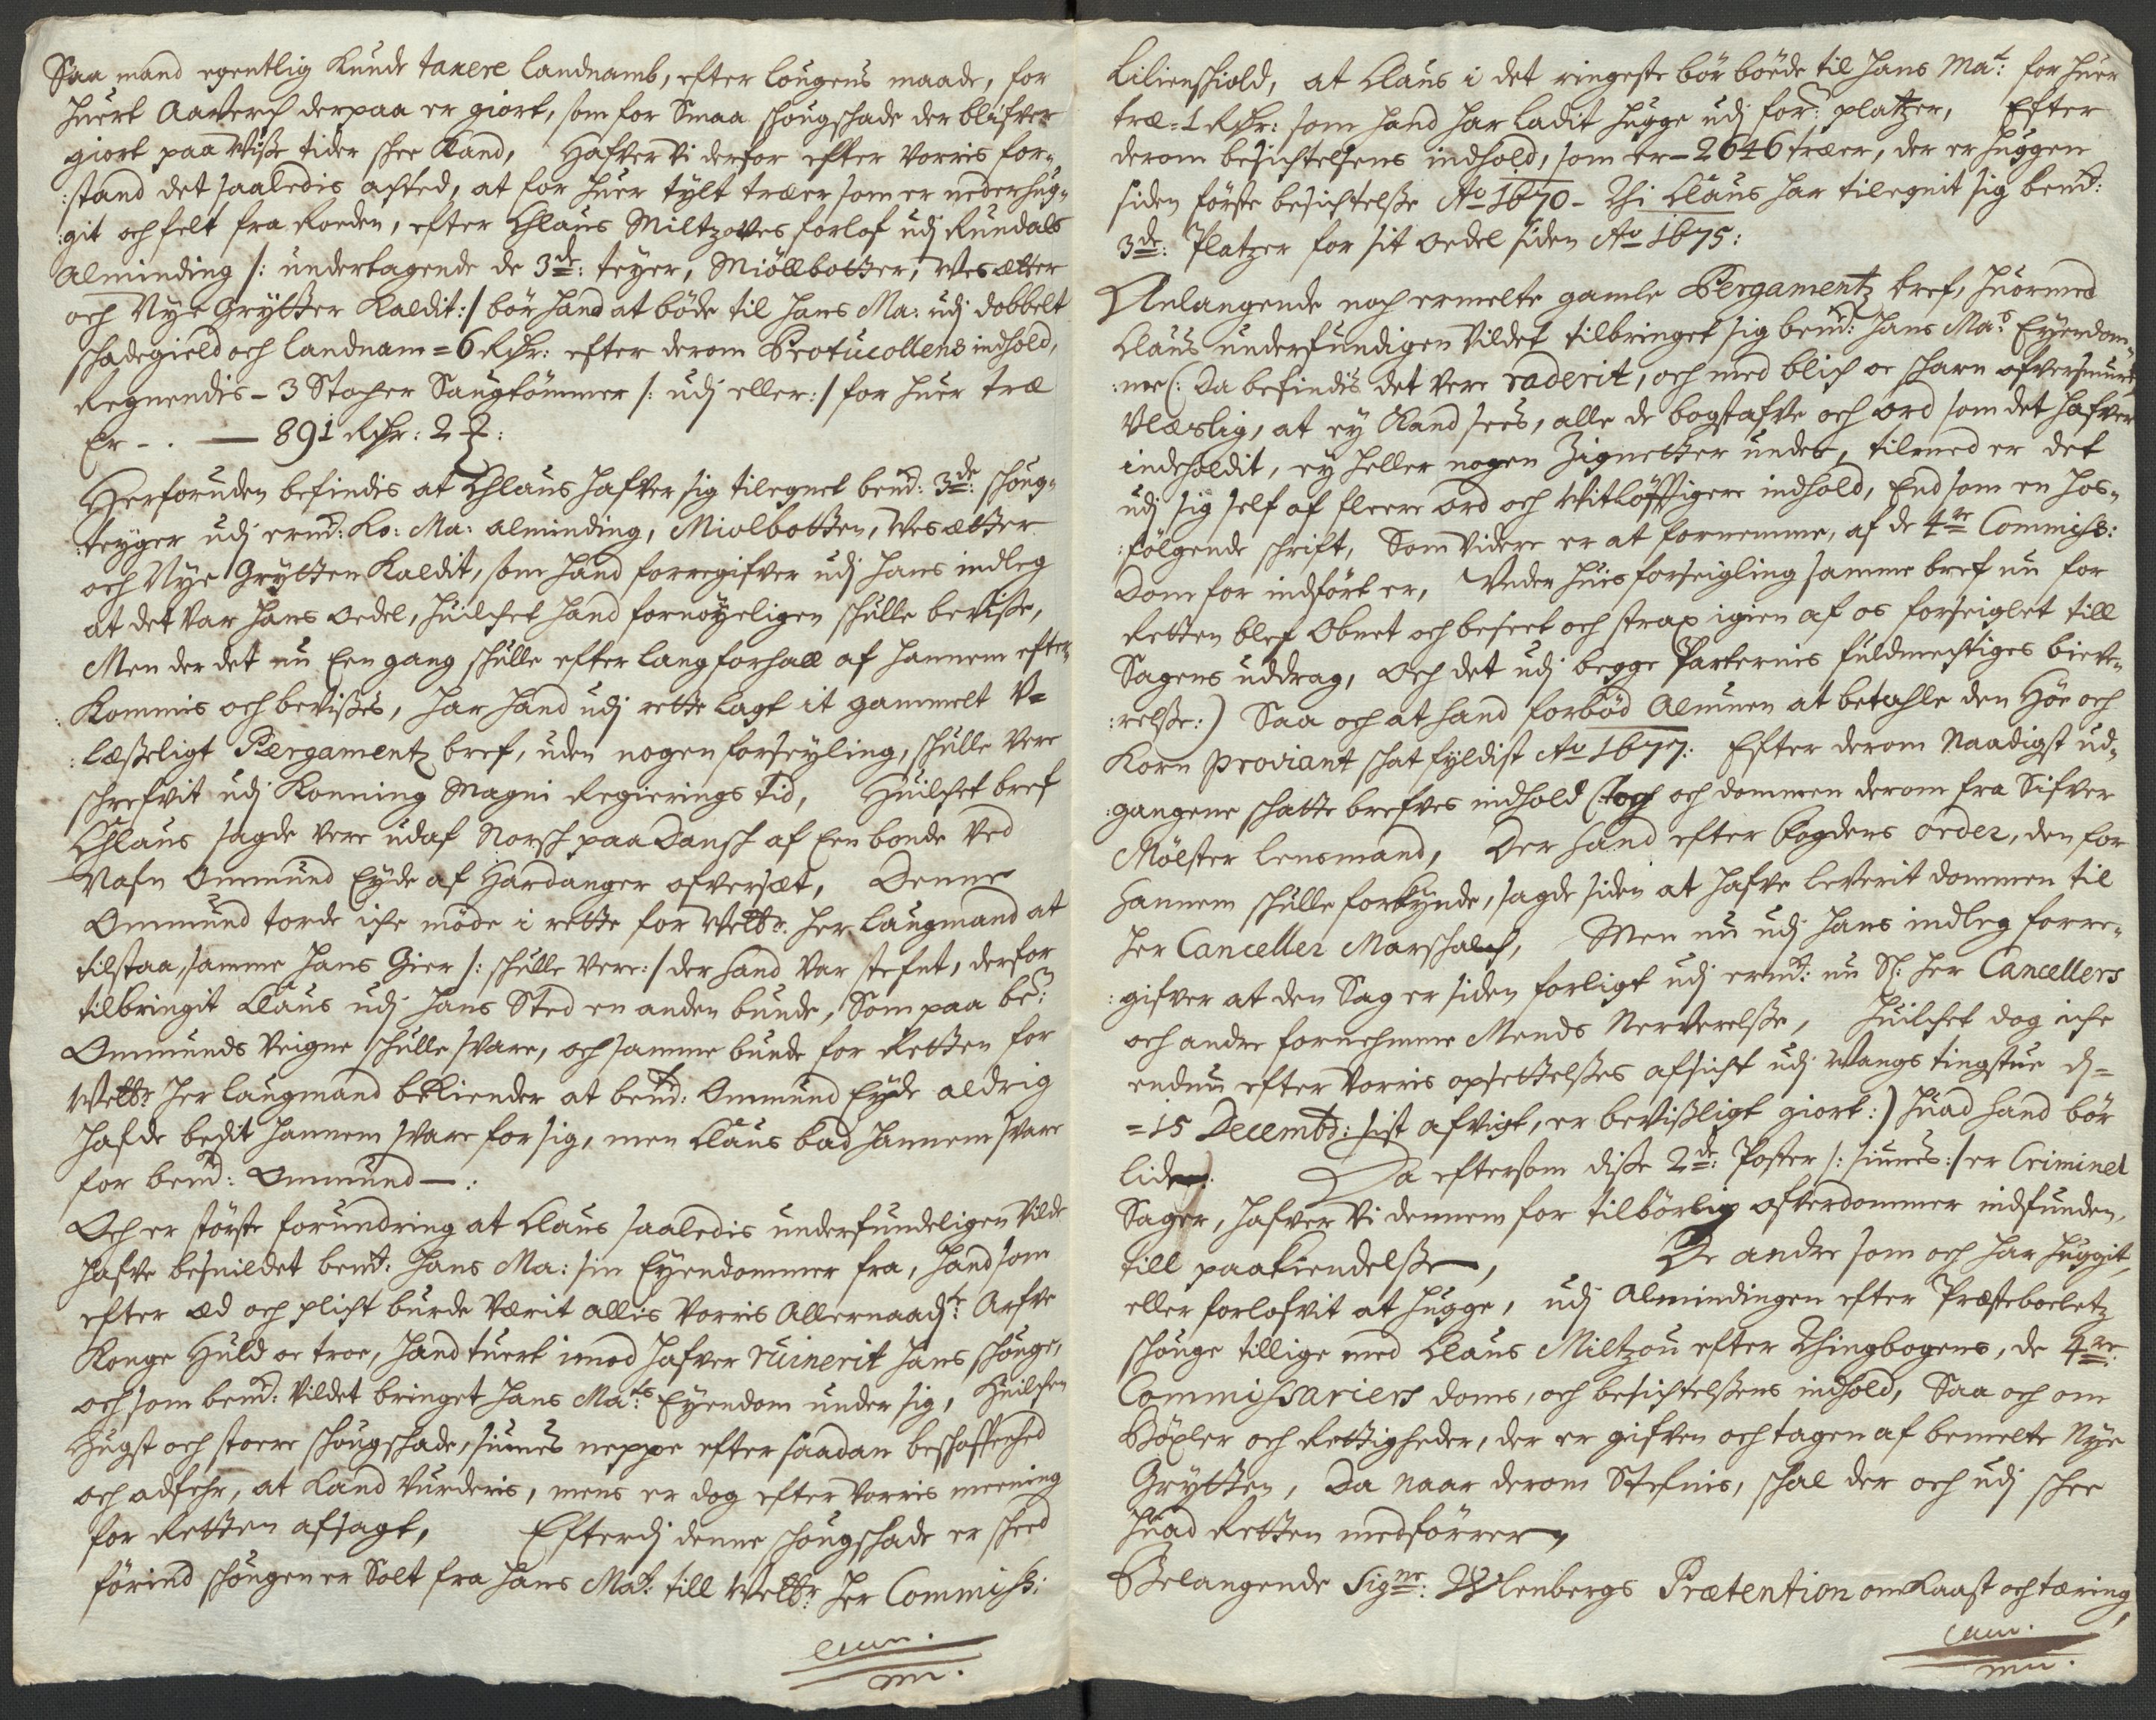 Saa mand egentlig kunde taxere landnamb, efter lougens maade, for
huert Aaverch derpaa er giort, som for Smaa schougschade der blifver
giort paa wiße tider schee kand, Hafver vi derfor efter vorris for-
:stand det saaledis acted, at for huer tylt træer som er nederhug-
:git och felt fra Roeden, efter Chlaus Miltzoves forlof udj Rundals
Alminding /: undertagende de 3de: teyer, Miöllbotter, Wesætter
och Nye Grytter kaldit :/ bör hand at böde til Hans Ma: udj dobbelt
schadegield och landnam = 6 Rdr: efter derom Protucollens indhold,
Regnendis - 3 Stocher Saugtömmer /: udj eller :/ for huer træ
Er - . — 891 Rdr: 2 ʒ:
Herforuden befindis at Chlaus hafver sig tilegnet bemd: 3de: schoug-
:teyger udj ermd: Ko: Ma: alminding, Miolbotten, Wesætter
och Nye Grytten kaldit, som hand forregifver udj hans indleg
at det var hans oedel, huilchet hand fornöyeligen schulle beviße,
Men der det nu Een gang schulle efter lang forhall af hannem efter-
:kommis och bevißes, har hand udj rette lagt it gammelt V=
:læßeligt Pergamentz bref, uden nogen forseyling, schulle vere
schrefvit udj Konning Magni Regierings tid, Huilchet bref
Chlaus sagde vere udaf Norsch paa Dansch af Een bonde ved
Nafn Ommund Eyde af Hardanger ofversæt, Denne
Ommund torde iche möde i rette for Welbr: Her laugmand at
tilstaa, samme hans Gier /: schulle vere :/ der hand var stefnt, derfor
tilbringit Claus udj hans Sted en anden bunde, Som paa be:
Ommunds veigne schulle svare, och samme bunde for Retten for
Welbr: Her laugmand bekiender at bemd: Ommund Eyde aldrig
hafde bedit hannem svare for sig, men Claus bad hannem svare
for bemd: Ommund —:
Och er störste forundring at Claus saaledis underfundeligen vilde
hafve besnildet bemd: Hans Ma: sin Eyendommer fra, hand som
efter æd och plicht burde værit allis vorris Allernaadste: Arfve
Konge Huld oc troe, hand tuert imod hafver ruinerit hans schouge,
och som bemd: vildet bringet Hans Mats Eyendom under sig, Huilchen
Hugst och stoere schougschade, siunes neppe efter saadan beschaffenhed
och adfehr, at kand vurderis, mens er dog efter vorris meening
for Retten afsagt, Efterdj denne schougschade er scheed
förind schougen er Solt fra Hans Mat: till Welbr: Her Commisß:

Lilienschiold, at Claus i det ringeste bör böede til Hans Mat: for huer
træ = 1 Rdr: som hand har ladit hugge udj for: platzer, Efter
derom besichtelsens indhold, som er - 2646 træer, der er huggen
siden förste besichtelße Ao 1670 - Thi Claus har tilegnit sig bemd:
3de: Platzer for sit oedel siden Ao 1675:
Anlangende noch ermelte gamle Pergamentz bref, huormed
Claus underfundigen vildet tilbringet sig bemd: Hans Mas Eyendom-
:me (: Da befindis det vere raderit, och med blich oc scharn ofversmurt
Vlæslig, at ey kand sees, alle de bogstafve och ord som det hafver
indeholdit, ey heller nogen Zignetter under, tilmed er det
udj sig self af fleere ord och vitlöfftigere indhold, End som en hos-
:fölgende schrift, Som videre er at fornemme, af de 4re Commisß:
Dom for indfört er, Veder huis forseigling samme bref nu for
Retten blef Obnet och beseet och strax igien af os forseiglet till
Sagens uddrag, Och det udj begge Parternis fuldmechtiges bieve-
:relße:) Saa och at hand forböd Almuen at betahle den Höe och
Korn proviant schat fyldist Ao 1677: Efter derom Naadigst ud-
:gangene schatte brefves indhold och dommen derom fra Sifver
Mölster lensmand, Der hand efter fogdens order, den for
hannem schulle forkynde, sagde siden at hafve leverit dommen til
Her Canceller Marschalch, Men nu udj hans indleg forre-
:gifver at den Sag er siden forligt udj ermd: nu Sl: Her Cancellers
och andre fornehmme Mends Nerverelße, Huilchet dog iche
endnu efter vorris opsettelßes afsicht udj Wangs tingstue d:
=15 Decembr: sist afvigt, er bevißligt giort:) huad hand bör
lide. Da eftersom diße 2de: Poster /: siunes :/ er Criminel
Sager, hafver vi dennem for tilbörlig ofverdommer indfunden,
till paakiendelße, De andre som och har huggit,
eller forlofvit at hugge, udj Almindingen efter Præsteboeletz
schouge tillige med Claus Miltzou efter Thingbogens, de 4re:
Commisßariers doms, och besichtelßens indhold, Saa och om
Böxler och Rettigheder, der er gifven och tagen af bemelte Nye
Grytten, Da naar derom Stefnis, schal der och udj schee
huad Retten medförrer,
Belangende Signr: Wlenbergs Prætention om kaast och tæring,